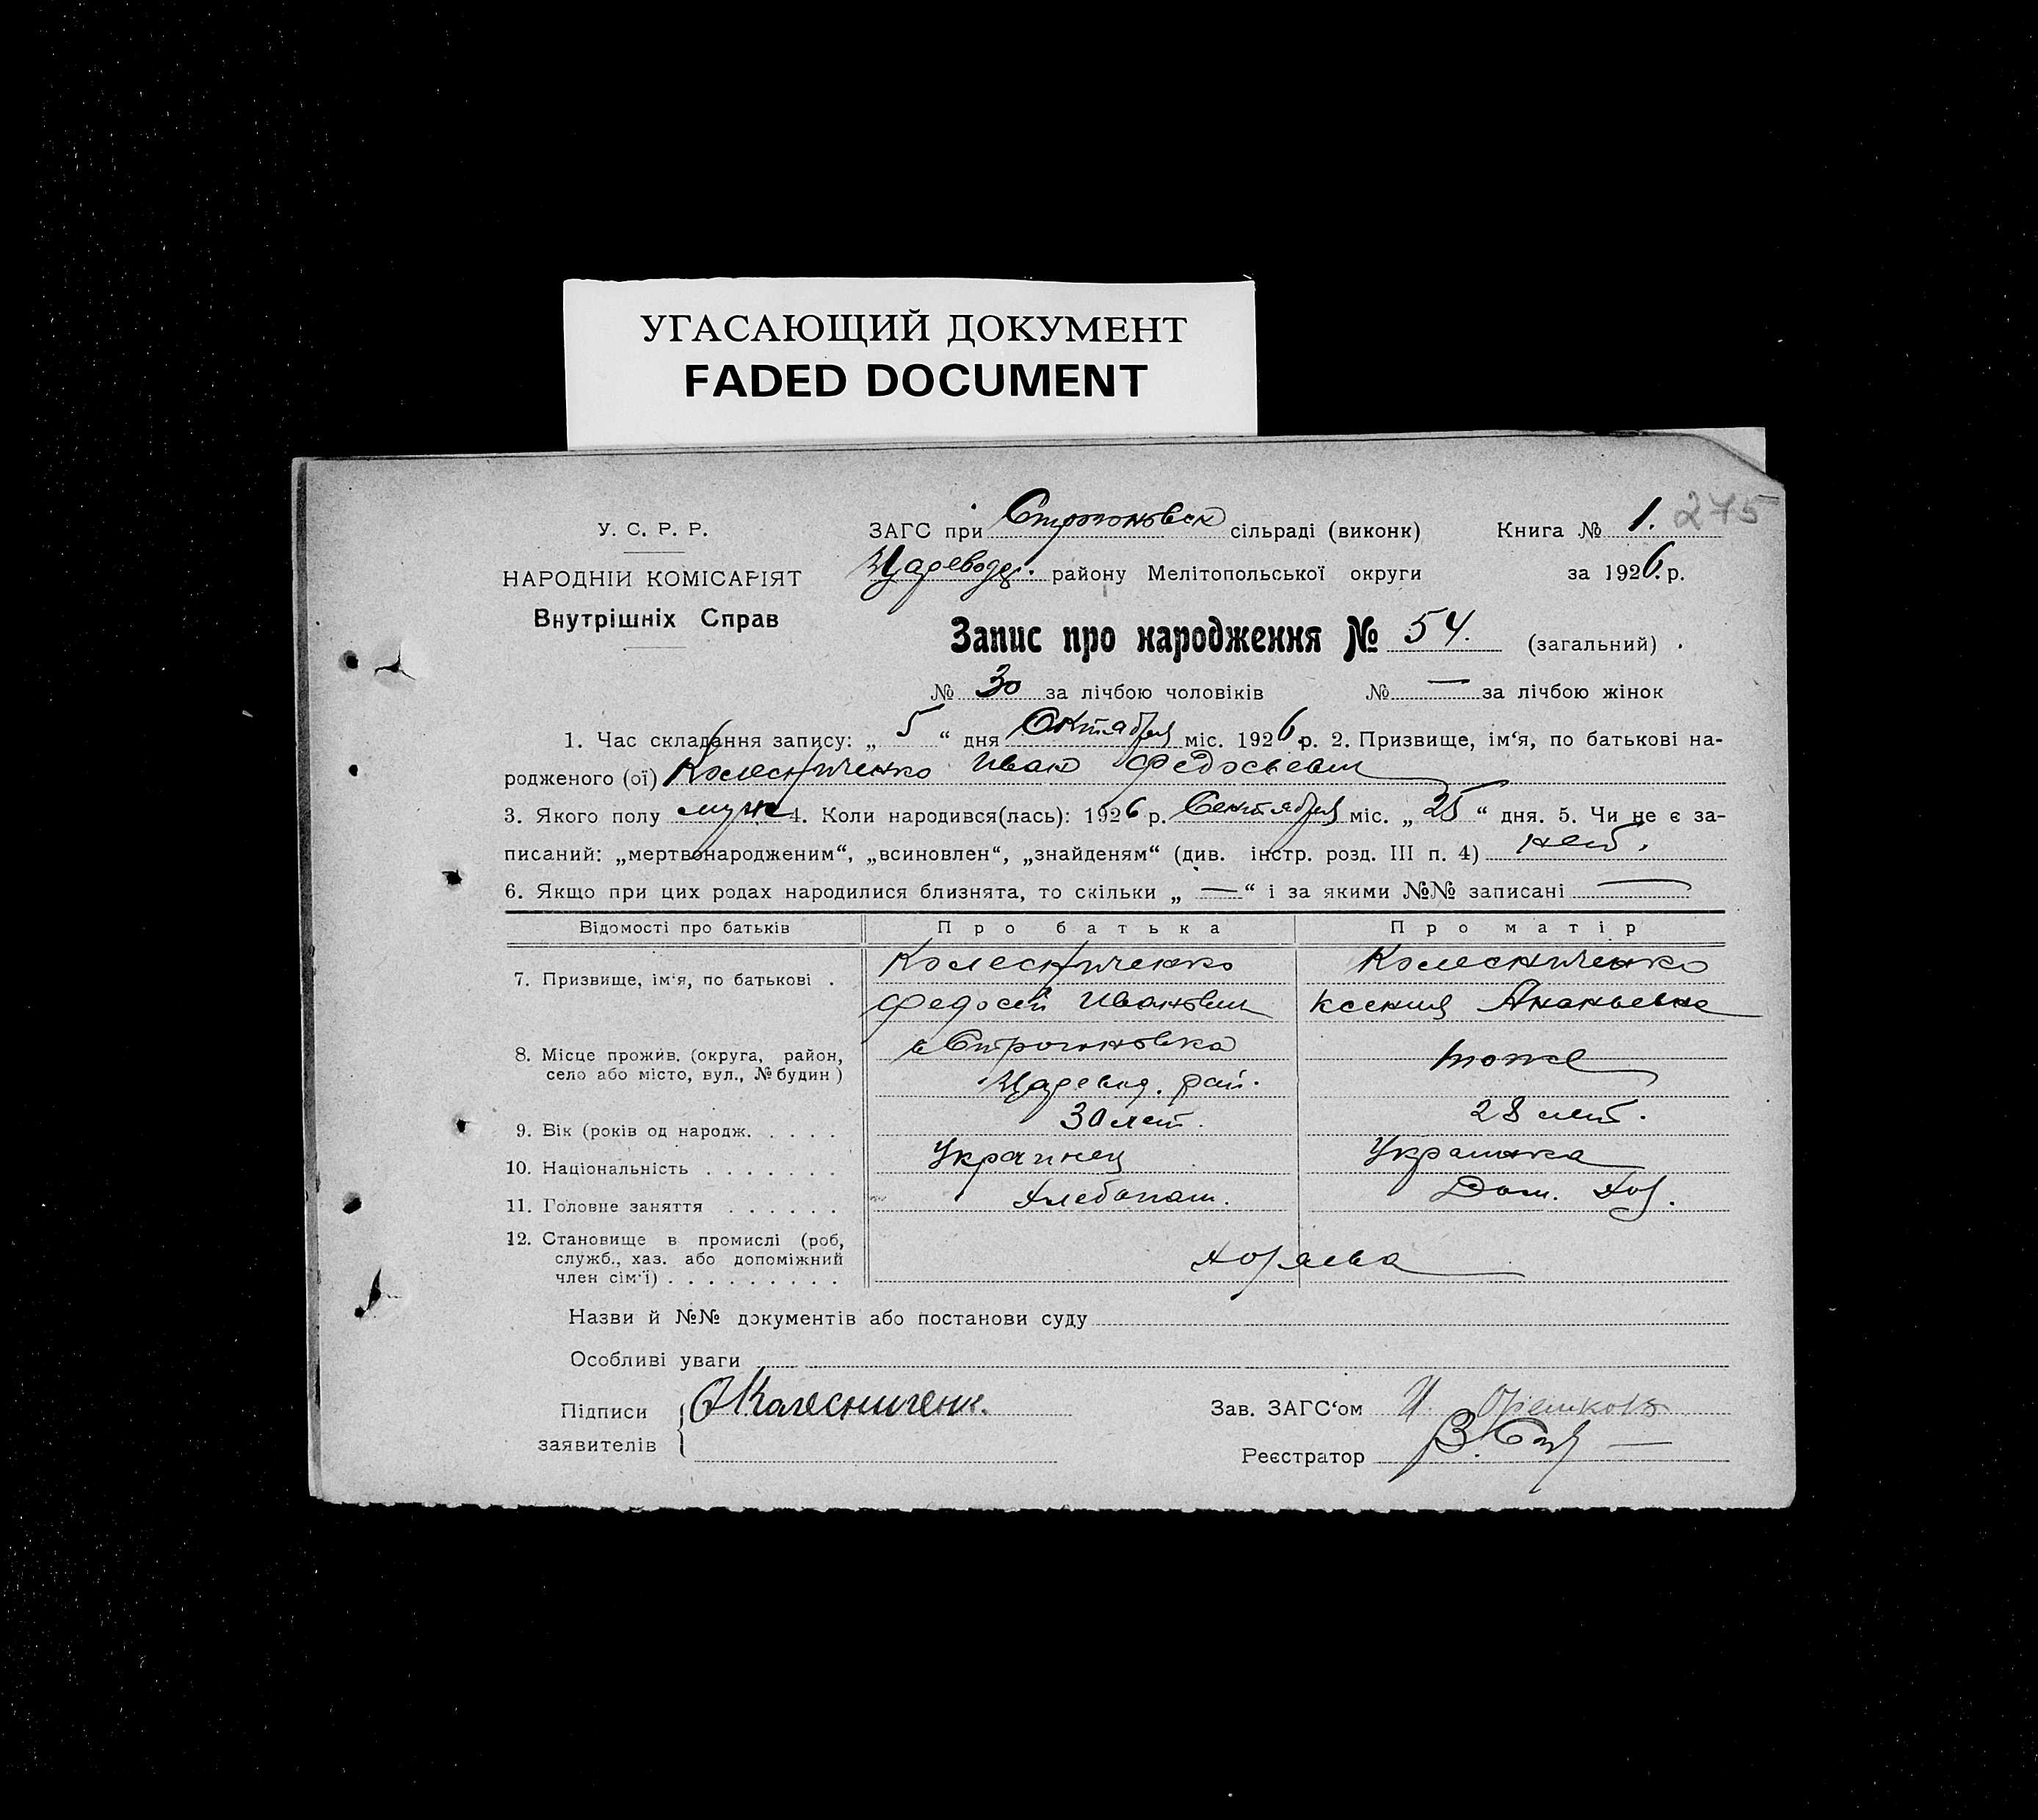 УГАСАЮЩИЙ ДОКУМЕНТ
FADED DOCUMENT
275
У. С. Р. Р.
НАРОДНІЙ КОМІСАРІЯТ
Внутрішніх Справ
ЗАГС при Строгоновск сільраді (виконк) Книга № 1.
Цареводр. району Мелітопольської округи за 1926. р.
Запис про народження № 54. (загальний)
№ 30 за лічбою чоловіків № — за лічбою жінок
1. Час складання запису: „ 5 “ дня Октября міс. 1926 р. 2. Призвище, ім‘я, по батькові на-
родженого (ої) Колесниченко Иван Федосьевич
3. Якого полу муж 4. Коли народився(лась): 1926 р. Сентября міс. „ 25 “ дня. 5. Чи не є за-
писаний: „мертвонародженим“, „всиновлен“, „знайденям“ (див. інстр. розд. III п. 4) нет.
6. Якщо при цих родах народилися близнята, то скільки „ — “ і за якими №№ записані —
Відомості про батьків Про батька Про матір
7. Призвище, ім‘я, по батькові . Колесниченко Колесниченко
Федосей Иванович Ксения Ананьевна
8. Місце прожив. (округа, район, с Строгоновка тоже
село або місто, вул., № будин ) Царевод. рай.
9. Вік (років од народж. . . . . 30 лет. 28 лет.
10. Національність . . . . . . . Украинец Украинка
11. Головне заняття . . . . . . Хлебопаш. Дом. Хоз.
12. Становище в промислі (роб,
служб., хаз. або допоміжний хозяева
член сім‘ї) . . . . . . . . .
Назви й №№ документів або постанови суду
Особливі уваги
Підписи Колесниченк. Зав. ЗАГС‘ом И.
заявителів
Реєстратор В.